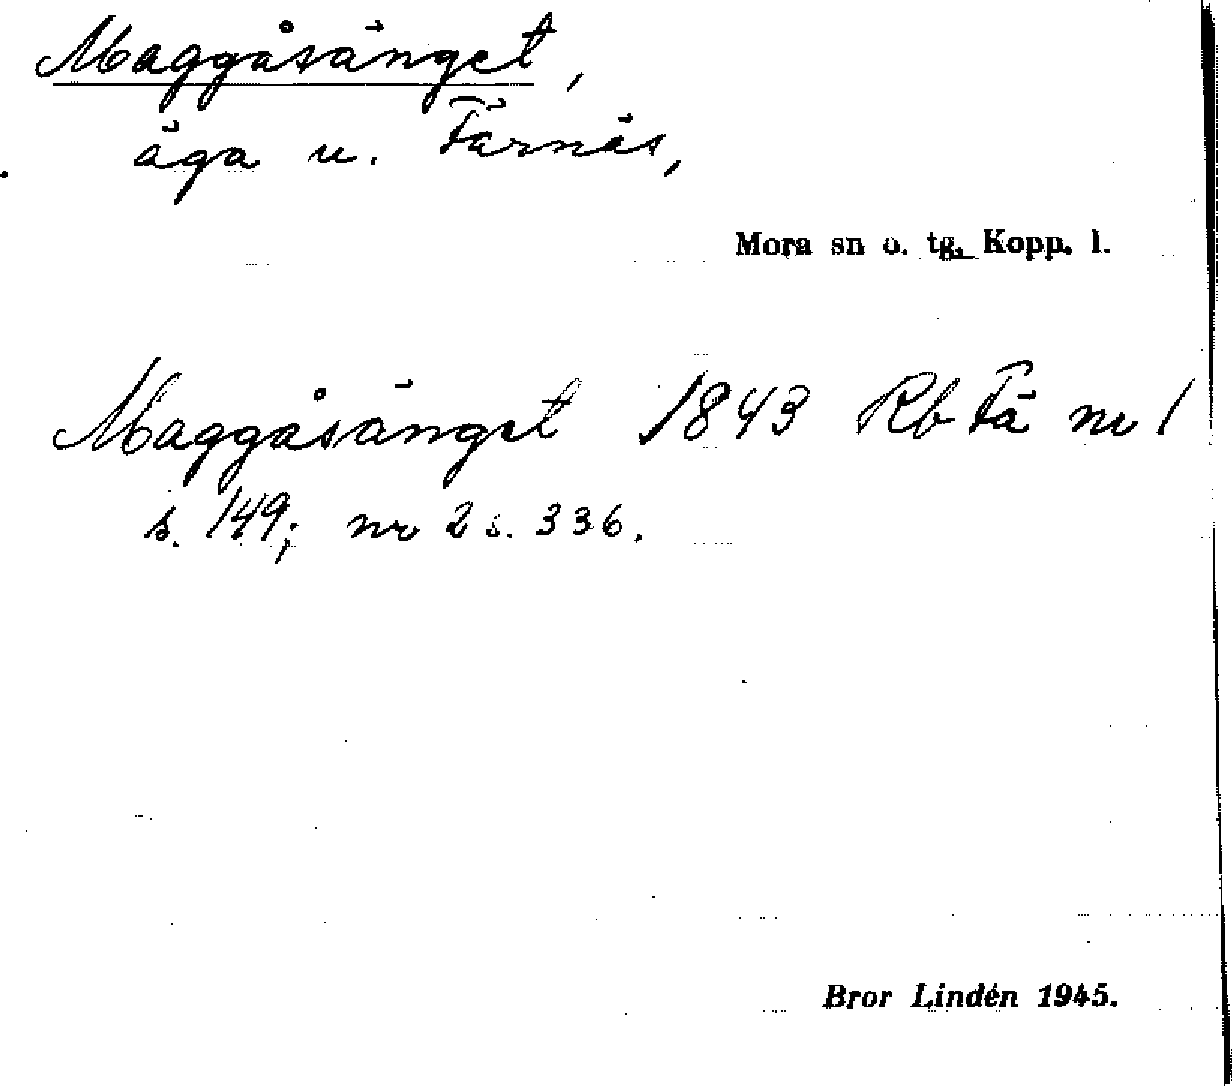 Maggåsänget,
äga u. Färnäs,
Mora sn o. tg. Kopp. l.
Maggåsänget 1843 Rb Fä nr 1
s. 149; nr 2 s. 336.
Bror Lindén 1945.